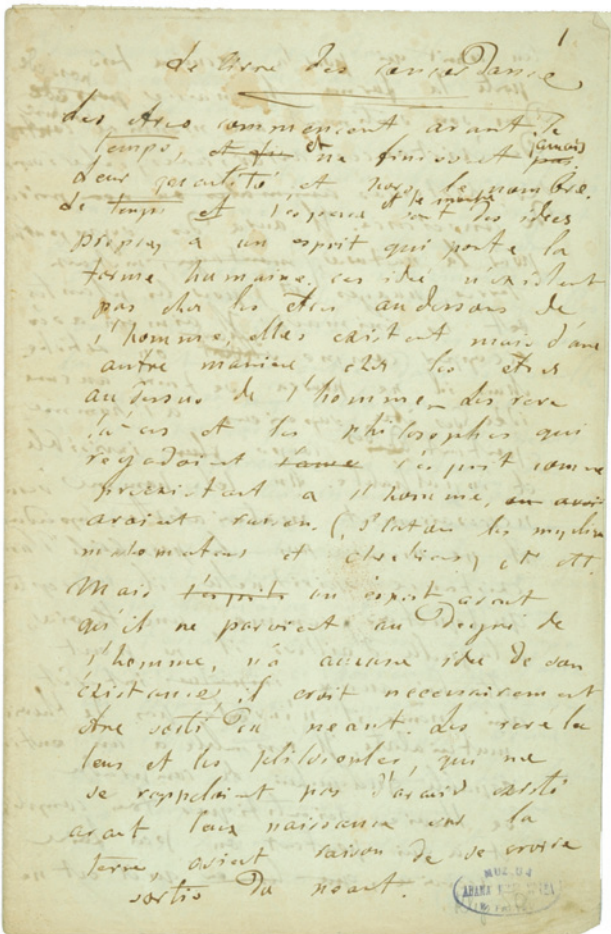 1
Le livre des concordance
Les êtres commencent avant le
temps, et ne finissent jamais pas
Leur quantité et hors le nombre.
Le temps et l'espace et le nombre sont des idées
propres a un esprit qui porte la
forme humaine, ces idée n'existent
pas chez les êtres audessous de
l'homme, elles existent mais d'une
autre maniere chez les êtres
au dessus de l'homme – Les reve
lateurs et les philosophes qui
regardoient l'ame l'esprit comme
preexistant a l'homme,
avoient raison. (Platon les mystiques
mahometans et chretiens) et ctt.
Mais l'esprit un esprit avant
qu'il ne parvient au Degré de
l'homme, n'a aucune idee de son
existance, il croit necessairement
être sorti Du neant. Les revela
teurs et les philosophes, qui ne
se rappelaient pas d'avoir existé
avant leur naissance sur la
terre, avient raison de se croire
sortis Du neant.